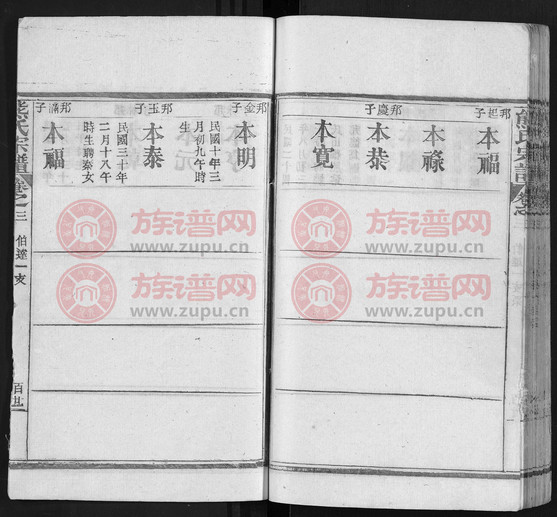 熊氏宗譜
邦起子
本福
本祿
邦慶子
本恭
本寬
邦金子
本明
民國十年三
月初九午時
生
邦玉子
本泰
民國三十年
二月十八午
時生聘秦女
邦滿子
本福
熊氏宗譜
卷之三
伯達一支
族谱网
www.zupu.cn
族谱网
www.zupu.cn
族谱网
www.zupu.cn
族谱网
www.zupu.cn